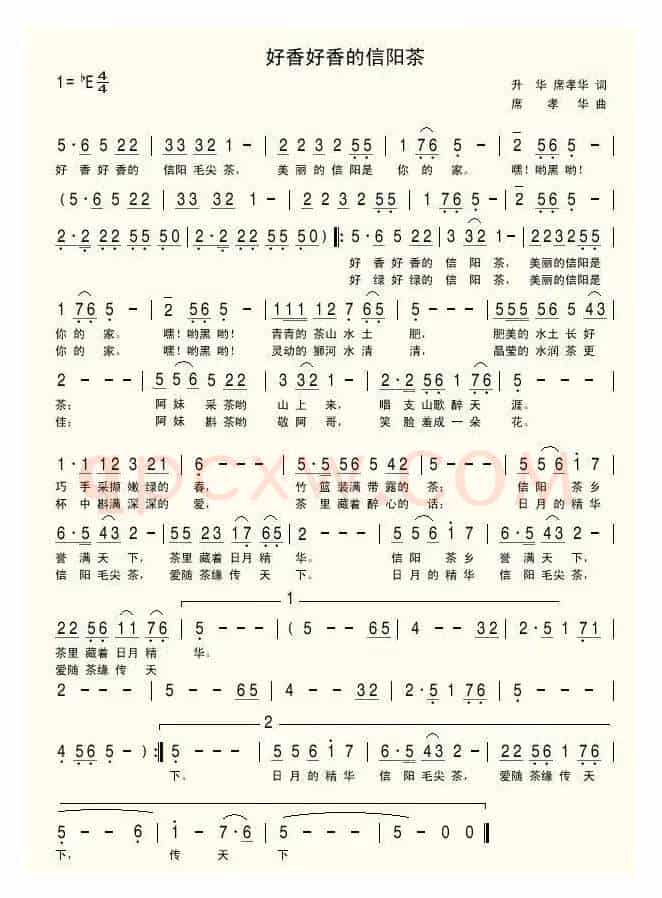 好香好香的信阳茶
1= ♭E 4/4
升 华 席孝华 词
席 孝 华 曲
5·6 5 22 | 33 32 1 - | 2 2 3 2 55 | 1 76 5 - | 2 56 5 - |
好 香 好 香的 信阳 毛尖 茶， 美 丽 的 信 阳是 你 的 家。 嘿！哟黑 哟！
(5·6 5 22 | 33 32 1 - | 2 2 3 2 55 | 1 76 5 - | 2 56 5 - |
2·2 22 55 50 | 2·2 22 55 50) ‖: 5·6 5 22 | 3 33 1 - | 2232 55 |
好 香 好 香的 信 阳 茶， 美丽的信阳是
好 绿 好 绿的 信 阳 茶， 美丽的信阳是
1 76 5 - | 2 56 5 - | 111 12 7 65 | 555 56 5 43 |
你 的 家。 嘿！哟黑 哟！ 青青的 茶山 水 土 肥， 肥美的 水土 长 好
你 的 家。 嘿！哟黑 哟！ 灵动的 狮河 水 清 清， 晶莹的 水润 茶 更
2 - - - | 55 6 5 22 | 3 32 1 - | 2·2 56 1 76 | 5 - - - |
茶； 阿妹 采 茶哟 山 上 来， 唱 支 山歌 醉 天 涯。
佳； 阿妹 斟 茶哟 敬 阿 哥， 笑 脸 羞成 一 朵 花。
1·1 12 3 21 | 6 - - - | 2·2 22 5 76 | 5 - - - | 5 5 6 1 7 |
巧 手 采撷 嫩 绿的 春， 竹 篮 装满 带 露的 茶； 信 阳 茶 乡
杯 中 斟满 深 深的 爱， 茶 里 藏着 醉 心的 话； 日 月 的 精 华
6·5 43 2 - | 55 43 27 65 | 2 - - - | 5 5 6 1 7 | 6·5 43 2 - |
誉 满 天 下， 茶里 藏着 日月 精 华。 信 阳 茶 乡 誉 满 天 下，
信 阳 毛尖 茶， 爱随 茶缘 传 天 下。 日 月 的 精 华 信 阳 毛尖 茶，
1
22 56 11 76 | 5 - - - | (5 - - 65 | 4 - - 32 | 2·5 1 71 |
茶里 藏着 日月 精 华。
爱随 茶缘 传 天
2 - - - | 5 - - 65 | 4 - - 32 | 2·5 1 76 |
2
4 56 5 - ) :‖ 5 - - - | 5 5 6 1 7 | 6·5 43 2 - | 22 56 12 76 |
下。 日 月 的 精 华 信 阳 毛尖 茶， 爱随 茶缘 传 天
5 - - 6 | 1 - 7·6 | 5 - - - | 5 - 0 0 ‖
下， 传 天 下
qpcxw.COM